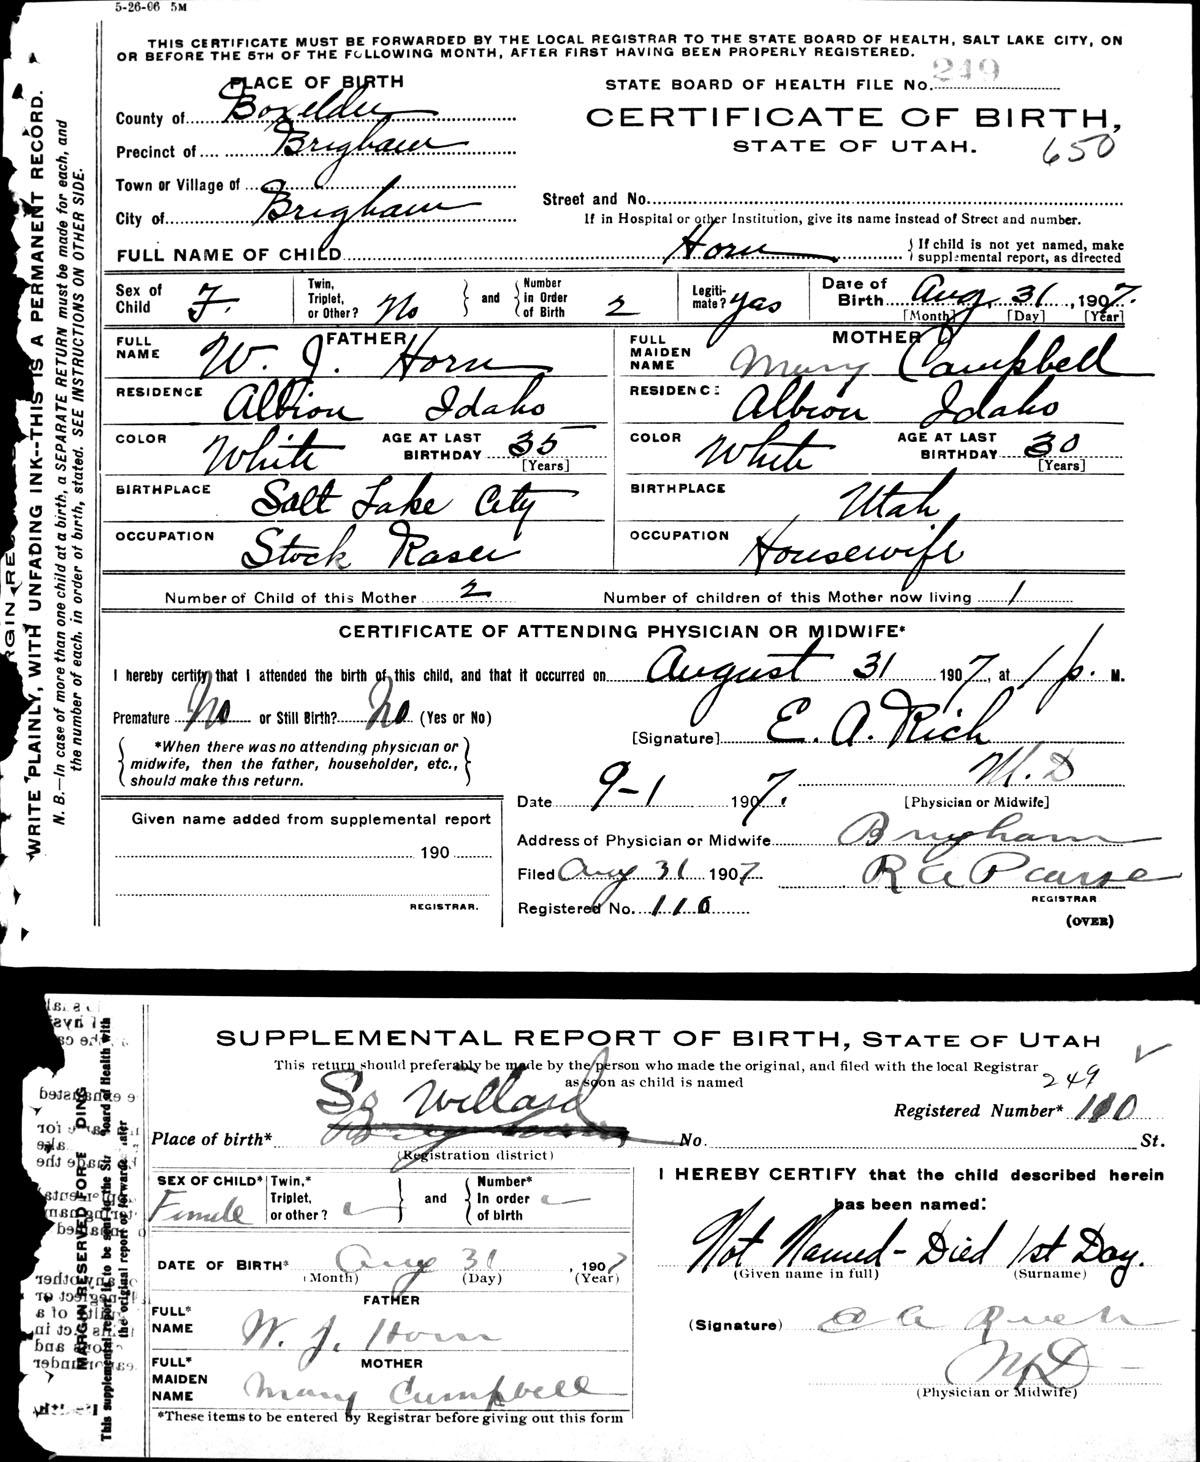 5-26-06 5M
THIS CERTIFICATE MUST BE FORWARDED BY THE LOCAL REGISTRAR TO THE STATE BOARD OF HEALTH, SALT LAKE CITY, ON
OR BEFORE THE 5TH OF THE FOLLOWING MONTH, AFTER FIRST HAVING BEEN PROPERLY REGISTERED.
PLACE OF BIRTH
STATE BOARD OF HEALTH FILE No. 249
County of Boxelder
CERTIFICATE OF BIRTH,
Precinct of Brigham
STATE OF UTAH. 650
Town or Village of
City of Brigham
Street and No.
If in Hospital or other Institution, give its name instead of Street and number.
FULL NAME OF CHILD Horn { If child is not yet named, make supplemental report, as directed
Sex of Child F. Twin, Triplet, or Other? No } and { Number in Order of Birth 2 Legiti-mate? yas Date of Birth Aug. 31, 1907.
[Month] [Day] [Year]
FATHER
FULL NAME W. J. Horn
MOTHER
FULL MAIDEN NAME Mary Campbell
RESIDENCE Albion Idaho
RESIDENCE Albion Idaho
COLOR White AGE AT LAST BIRTHDAY 35 [Years]
COLOR White AGE AT LAST BIRTHDAY 30 [Years]
BIRTHPLACE Salt Lake City
BIRTHPLACE Utah
OCCUPATION Stock Raser
OCCUPATION Housewife
Number of Child of this Mother 2 Number of children of this Mother now living 1
CERTIFICATE OF ATTENDING PHYSICIAN OR MIDWIFE*
I hereby certify that I attended the birth of this child, and that it occurred on August 31 1907, at 1 p. M.
Premature No or Still Birth? No (Yes or No)
[Signature] E. A. Rich
M. D
[Physician or Midwife]
{ *When there was no attending physician or }
midwife, then the father, householder, etc.,
should make this return.
Date 9-1 1907.
Given name added from supplemental report
190
REGISTRAR.
Address of Physician or Midwife Brigham
Filed Aug 31 1907 R A Pearse
REGISTRAR
Registered No. 110
(OVER)
WRITE PLAINLY, WITH UNFADING INK--THIS IS A PERMANENT RECORD.
N. B.—In case of more than one child at a birth, a SEPARATE RETURN must be made for each, and
the number of each, in order of birth, stated. SEE INSTRUCTIONS ON OTHER SIDE.
SUPPLEMENTAL REPORT OF BIRTH, STATE OF UTAH
This return should preferably be made by the person who made the original, and filed with the local Registrar
as soon as child is named
249
So Willard
Registered Number* 110
Place of birth* No. St.
(Registration district)
SEX OF CHILD* Female Twin,* Triplet, or other? } and { Number* In order of birth
DATE OF BIRTH* Aug 31, 1907
(Month) (Day) (Year)
FATHER
FULL* NAME W. J. Horn
MOTHER
FULL* MAIDEN NAME Mary Cumpbell
*These items to be entered by Registrar before giving out this form
I HEREBY CERTIFY that the child described herein
has been named:
Not Named - Died 1st Day.
(Given name in full) (Surname)
(Signature) E A Rich
M D
(Physician or Midwife)
MARGIN RESERVED FOR